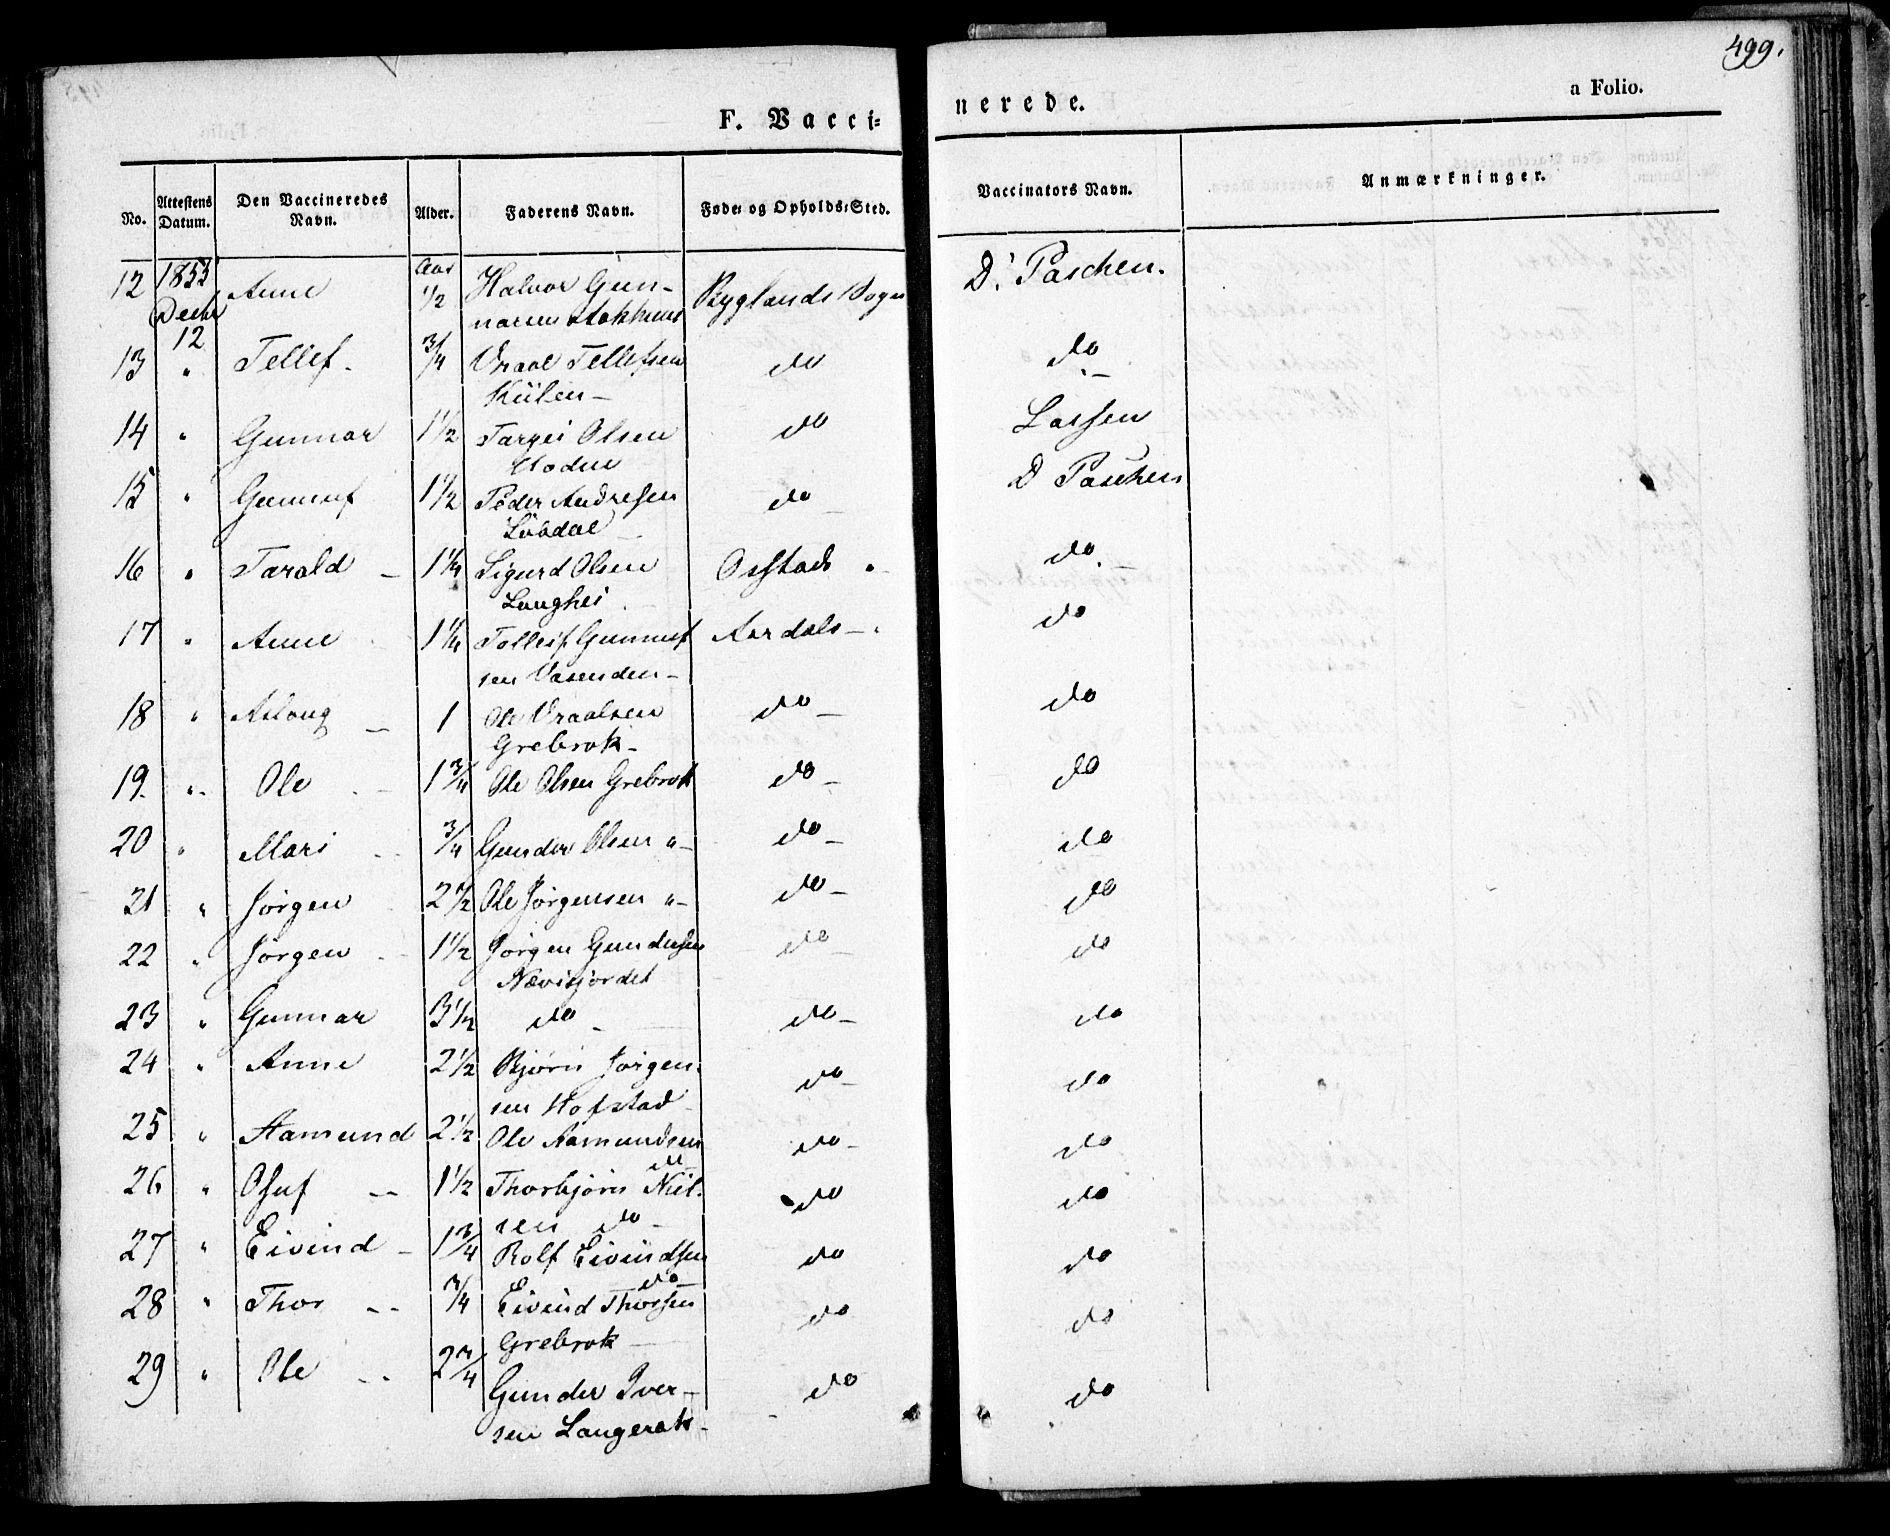 499.
F. Vacci= nerede. a Folio.
No. Attestens Datum. Den Vaccineredes Navn. Alder. Faderens Navn. Føde= og Opholds=Sted. Vaccinators Navn. Anmærkninger.
12 1853 Decbr 12 Anne Aar 1/2 Halvor Gun-
narsen Byglands Sogn Dr. Paschen.
13 " Tellef - 3/4 Vraal Tellefsen do do
14 " Gunnar 1 1/2 Targei Olsen do Lassen
15 " Gunnuf 1 1/2 Peder Andresen do D Paschen
16 " Tarald - 1 1/4 Sigurd Olsen Osstads " do
Langhei
17 " Anne 1 1/4 Tolleif Gunnuf Aardals - " do
sen Vasenden -
18 " Aslaug - 1 Ole Vraalsen do - do
Grebrok -
19. " - Ole - 1 3/4 Ole Olsen Grebrok do - do
20 " Mari - 3/4 Gunder Olsen " - do - do
21 " Jörgen 2 1/2 Ole Jörgensen " - do - do
22 " Jörgen - 1 1/2 Jörgen Gundersen do - do
23 " Gunnar 3 1/2 do - do - do
24 " Anne 2 1/2 Bjørn Jörgen-
sen Hofstad do - do
25 " Aamund 2 1/2 Ole Aamundsen do - do - do
26 " Osuf - 1 1/2 Thorbjørn Niel-
sen do - do do
27 " Eivind - 1 3/4 Rolf Eivindsen do - do do
28 " Thor - - 3/4 Eivind Thorsen do do
Grebrok -
29 " Ole - - 2 3/4 Gunder Iver- do do
sen Langerak -